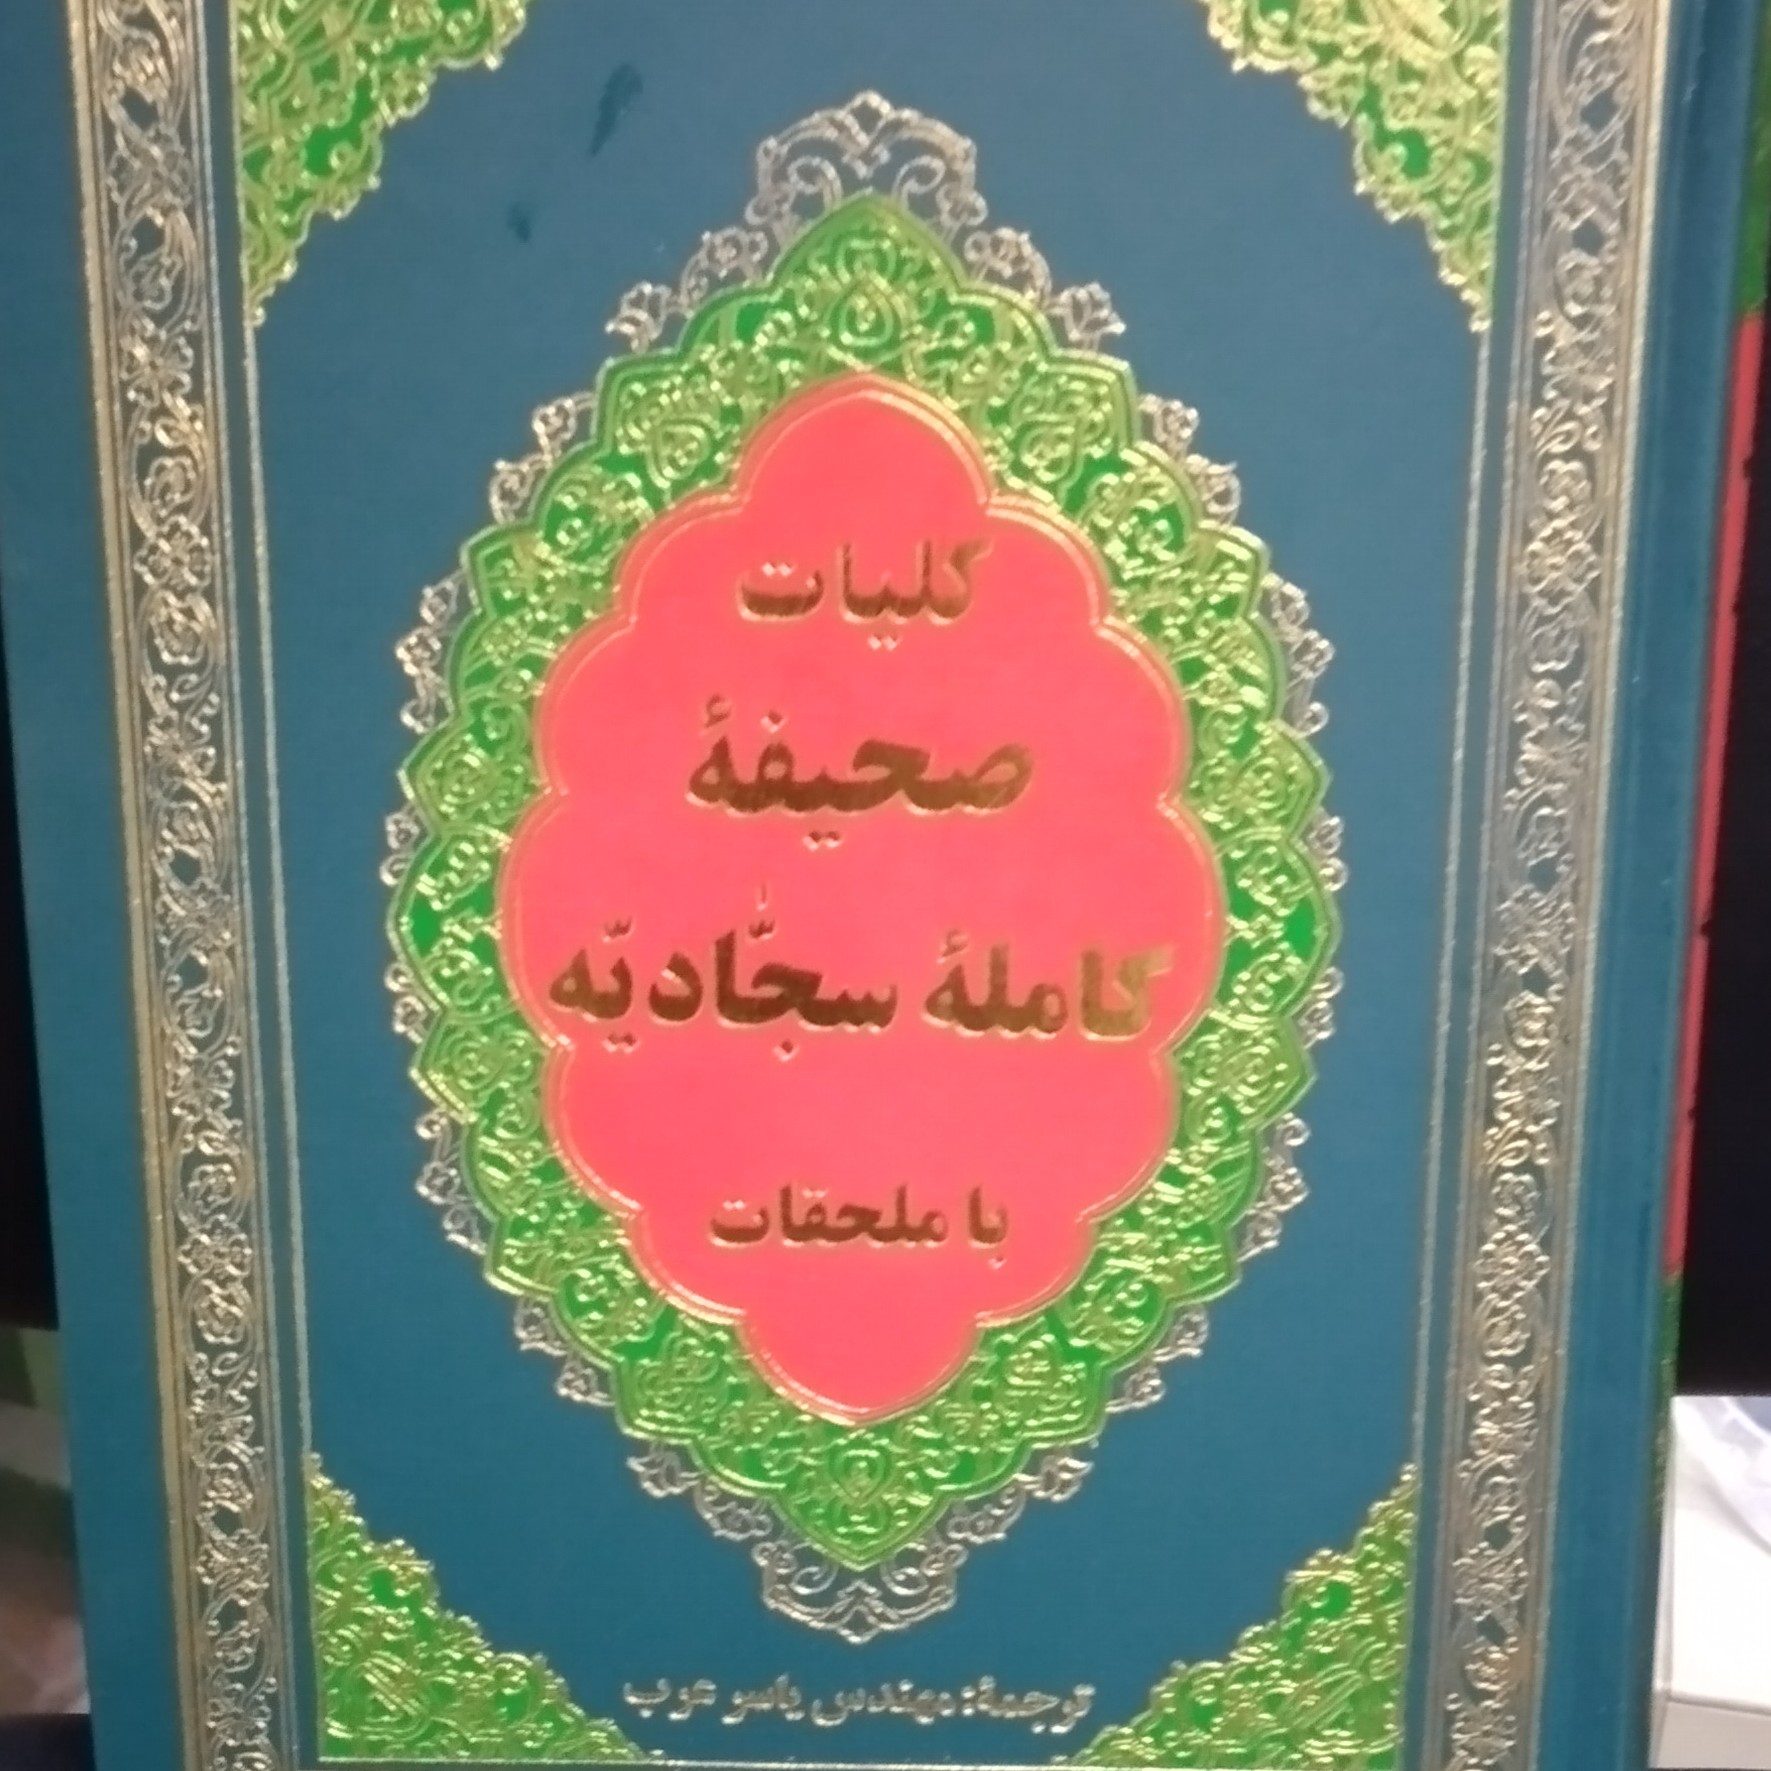 کلیات
صحیفهٔ
کاملهٔ سجّادیّه
با ملحقات
ترجمهٔ: مهندس یاسر عرب